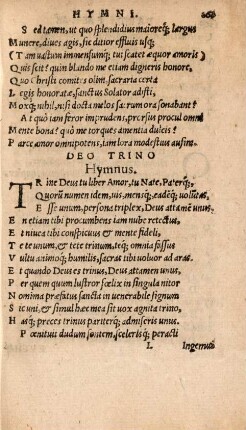 HYMNI.
Sed tamen, ut quo splendidus maiorcq; largus
Munere, diues agis, sic ditior effluis usq;
(Tam uastum immensumq; tui scatet æquor amoris)
Quis sciet? quin blando me etiam digneris honore,
Quo Christi comites olim, sacraria certa
Legis honoratæ, sanctus Solator adisti,
Moxq; nihil, nisi docta nulos sacrum ora sonabant?
At quò iam feror imprudens, precor sus procul omni
Mente bona? quò me torques amentia dulcis?
Parce amor omnipotens, tam lora modestius ausim.
DEO TRINO
Hymnus.
TRine Deus tu liber Amor, tu Nate, Paterq́;,
Quorũ numen idem, uis, mensq́; eadēq́; uolũtas,
Esse unum, persona triplex, Deus attamē unus.
En etiam tibi procumbens iam nube retectus,
Et niuea tibi conspicuus et mente fideli,
Te te unum, et tete trinum, teq; omnia fossus
Vultu animoq; humilis, sacras tibi uoluor ad aras.
Et quando Deus es trinus, Deus attamen unus,
Per quem quum lustror fœlix in singula nitor
Nomina præfatus sancta in uenerabile signum
Sic uni, et simul hæc mea sit uox agnita trino,
Hasq; preces trinus pariterq; admiseris unus.
Pœnituit dudum sontem, scelerisq; peracti
L Ingenuus